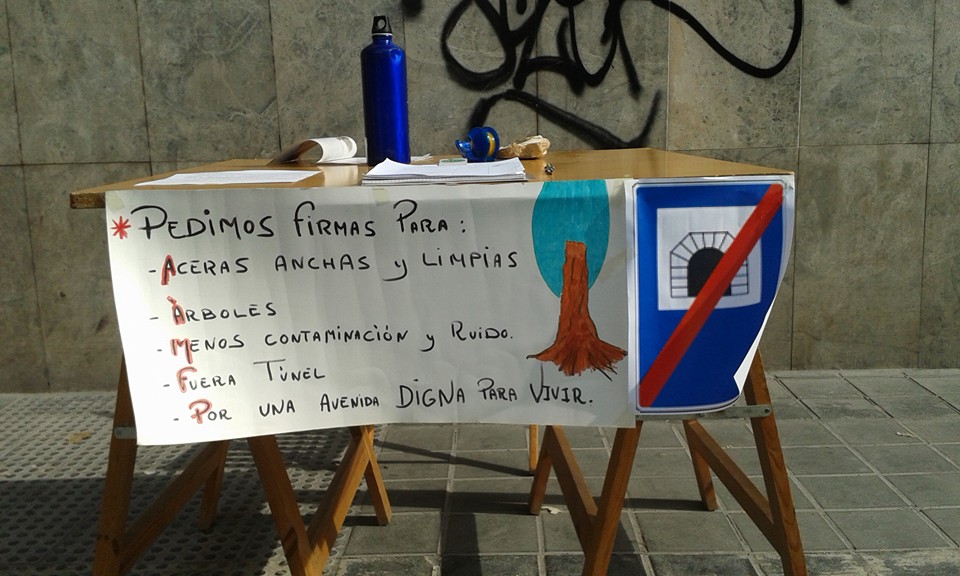 * PEDIMOS FIRMAS PARA:
- ACERAS ANCHAS y LIMPIAS
- ÀRBOLES
- MENOS CONTAMINACIÓN y RUIDO.
- FUERA TÚNEL
- POR UNA AVENIDA DIGNA PARA VIVIR.